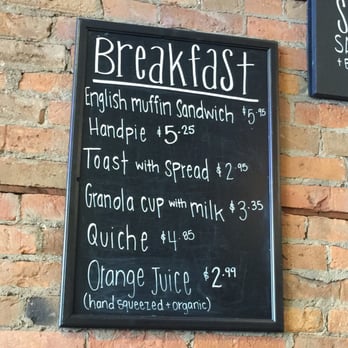 Breakfast
English muffin Sandwich $5.95
Handpie $5.25
Toast with Spread $2.95
Granola cup with milk $3.35
Quiche $4.85
Orange Juice $2.99
(hand squeezed + organic)